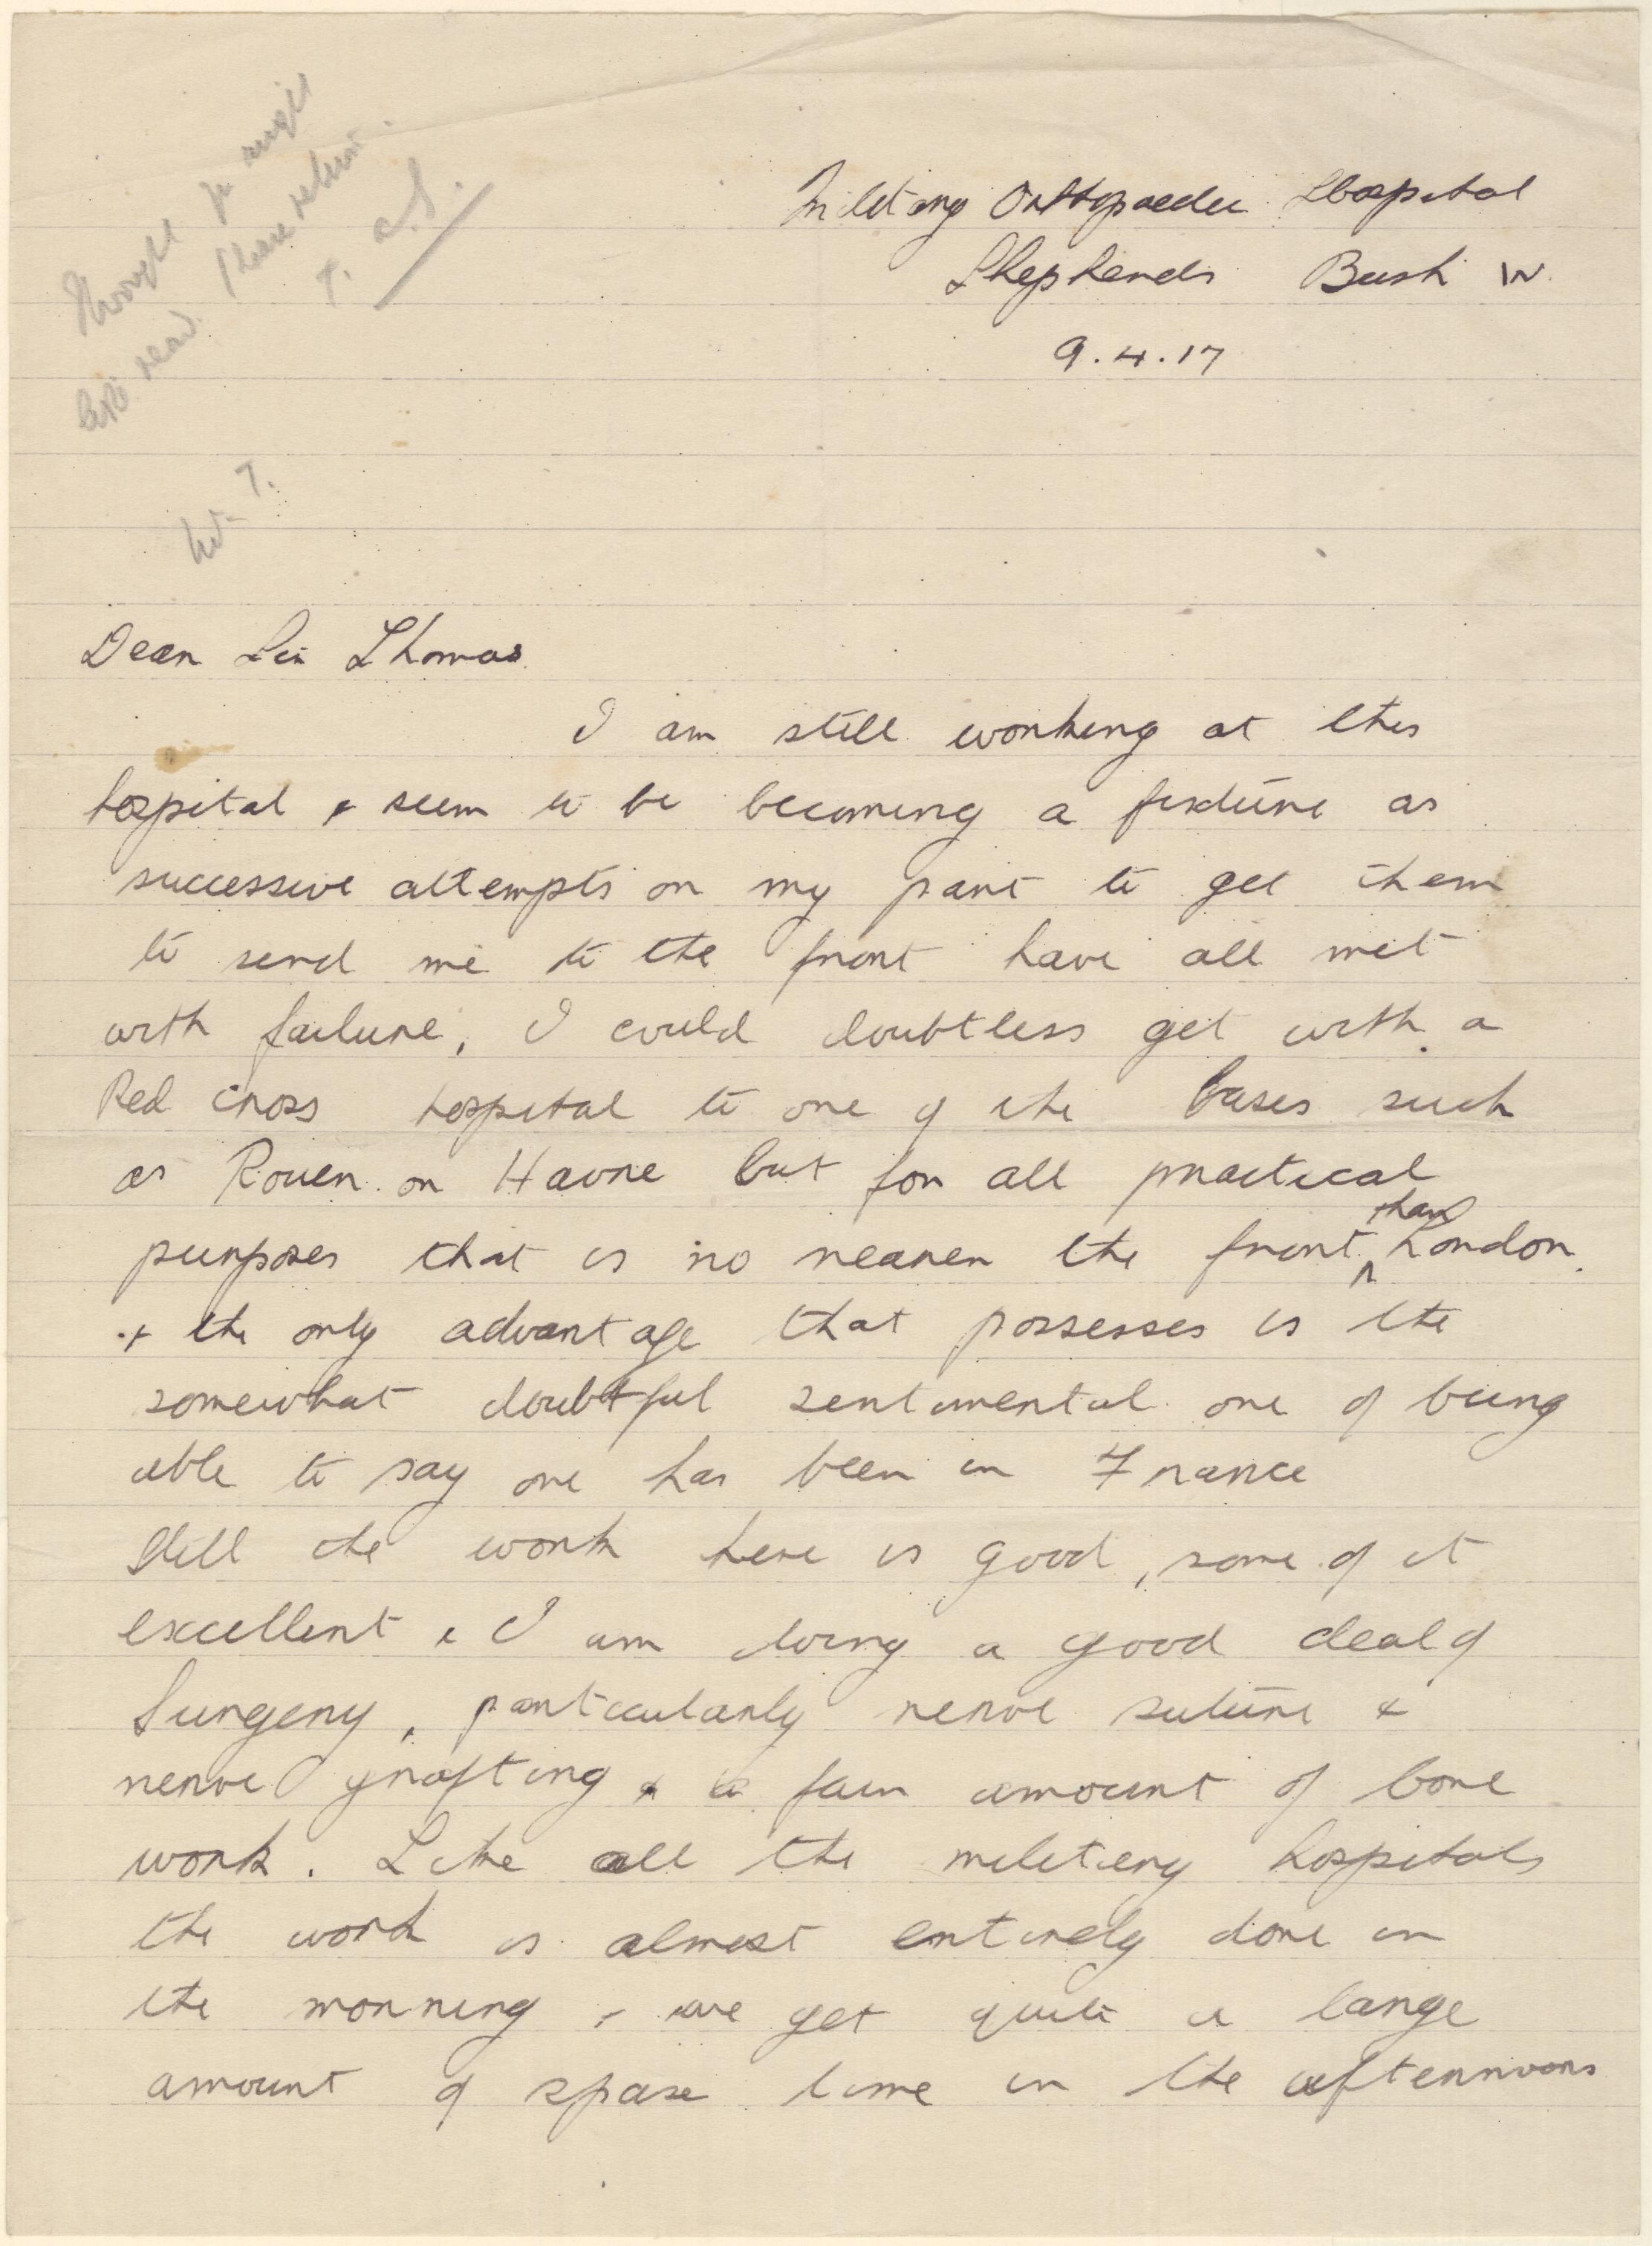 Thought you might
like read. Please return.
T. a.S.
Military Orthopaedic Hospital
Shepherds Bush W.
9.4.17
Dear Sir Thomas
I am still working at this
hospital & seem to be becoming a fixture as
successive attempts on my part to get them
to send me to the front have all met
with failure, I could doubtless get with a
Red cross hospital to one of the bases such
as Rouen or Havre but for all practical
purposes that is no nearer the front than London.
& the only advantage that possesses is the
somewhat doubtful sentimental one of being
able to say one has been in France
Still the work here is good, some of it
excellent & I am doing a good deal of
Surgery, particularly nerve suture &
nerve grafting & a fair amount of bone
work. Like all the military hospitals
the work is almost entirely done in
the morning & we get quite a large
amount of spare time in the afternoons